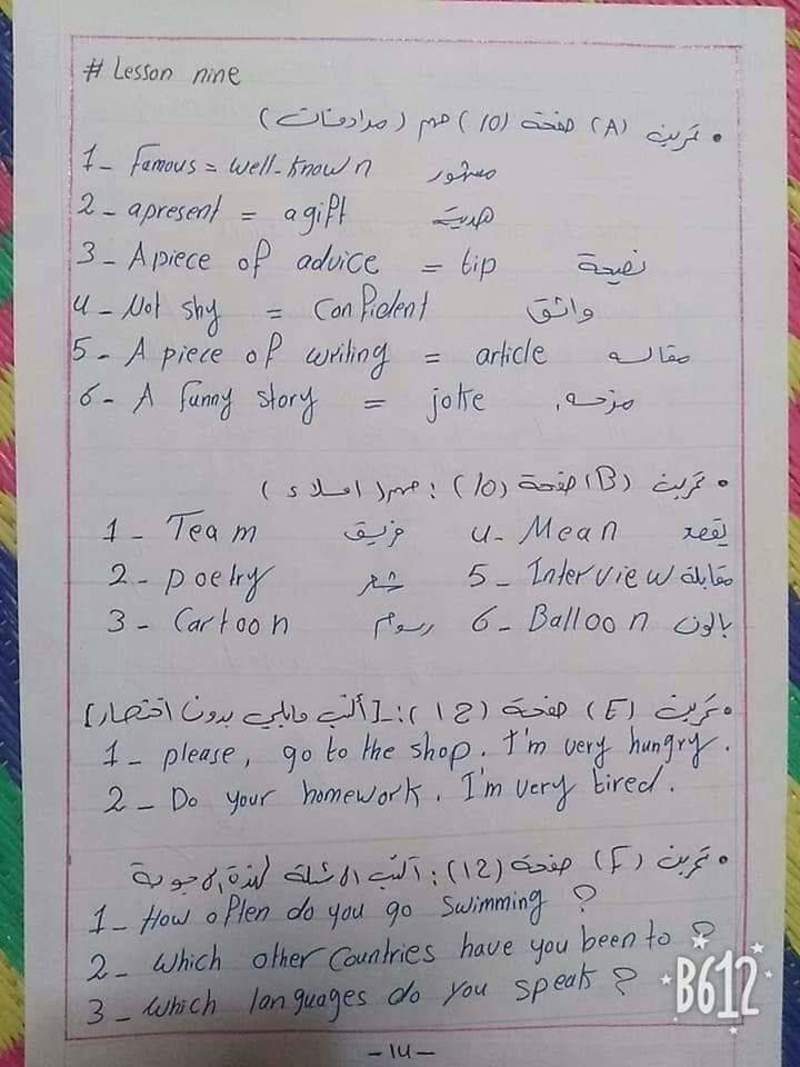 # Lesson nine
• تمرين (A) صفحة (10) مهم (مرادفات)
1- Famous = well-known مشهور
2- a present = a gift هدية
3- A piece of advice = tip نصيحة
4- Not shy = confident واثق
5- A piece of writing = article مقاله
6- A funny story = joke مزحه
• تمرين (B) صفحة (10): مهم (املاء)
1- Team فريق 4- Mean يقصد
2- poetry شعر 5- Interview مقابلة
3- Cartoon رسوم 6- Balloon بالون
• تمرين (E) صفحة (12): [أكتب مايلي بدون اختصار]
1- please, go to the shop. I'm very hungry.
2- Do your homework. I'm very tired.
• تمرين (F) صفحة (12): أكتب الاسئلة لهذة الاجوبة
1- How often do you go swimming ?
2- which other countries have you been to ?
3- which languages do you speak ?
B612
-14-